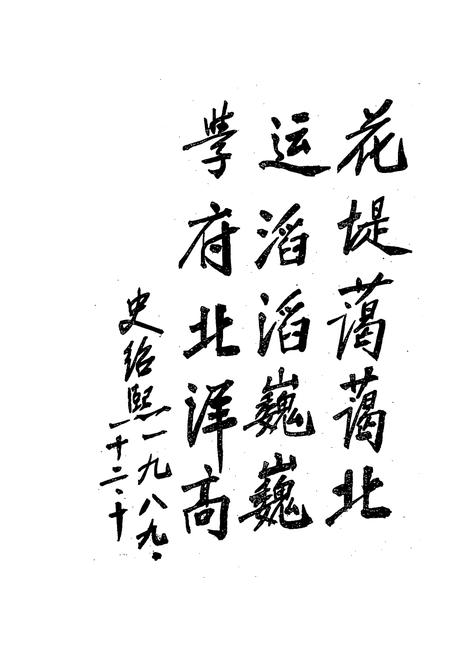 花堤蔼蔼北
运滔滔巍巍
學府北洋高
史绍熙一九八九·
十二·十